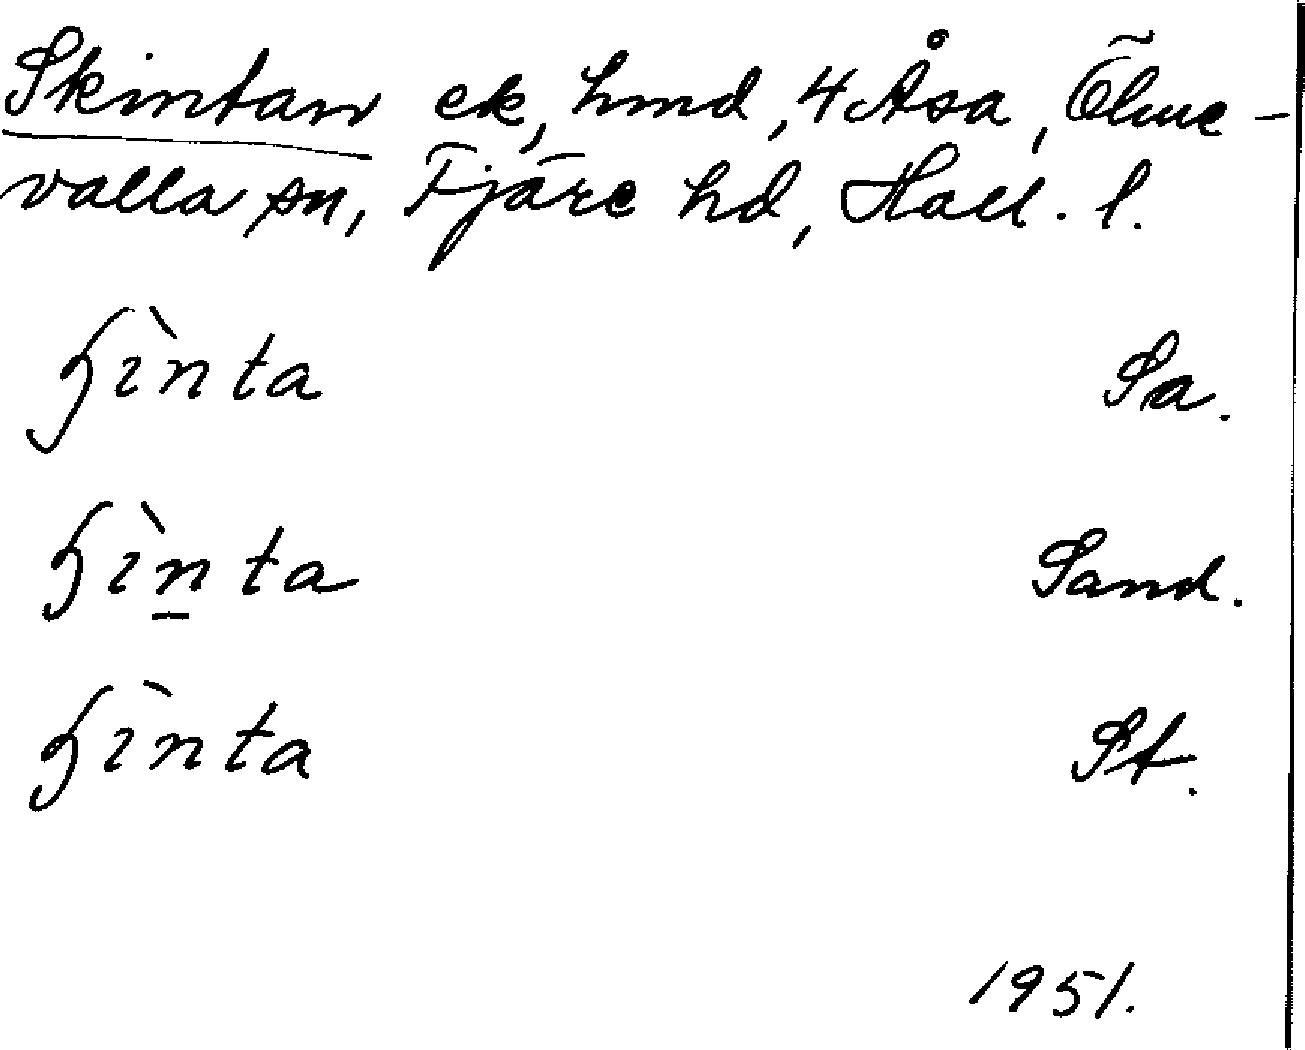 Skintan ek, hmd, 4 Åsa, Ölme-
valla sn, Fjäre hd, Hall. l.
ɧìnta Sa.
ɧìn̲ta Sand.
ɧìnta St.
1951.